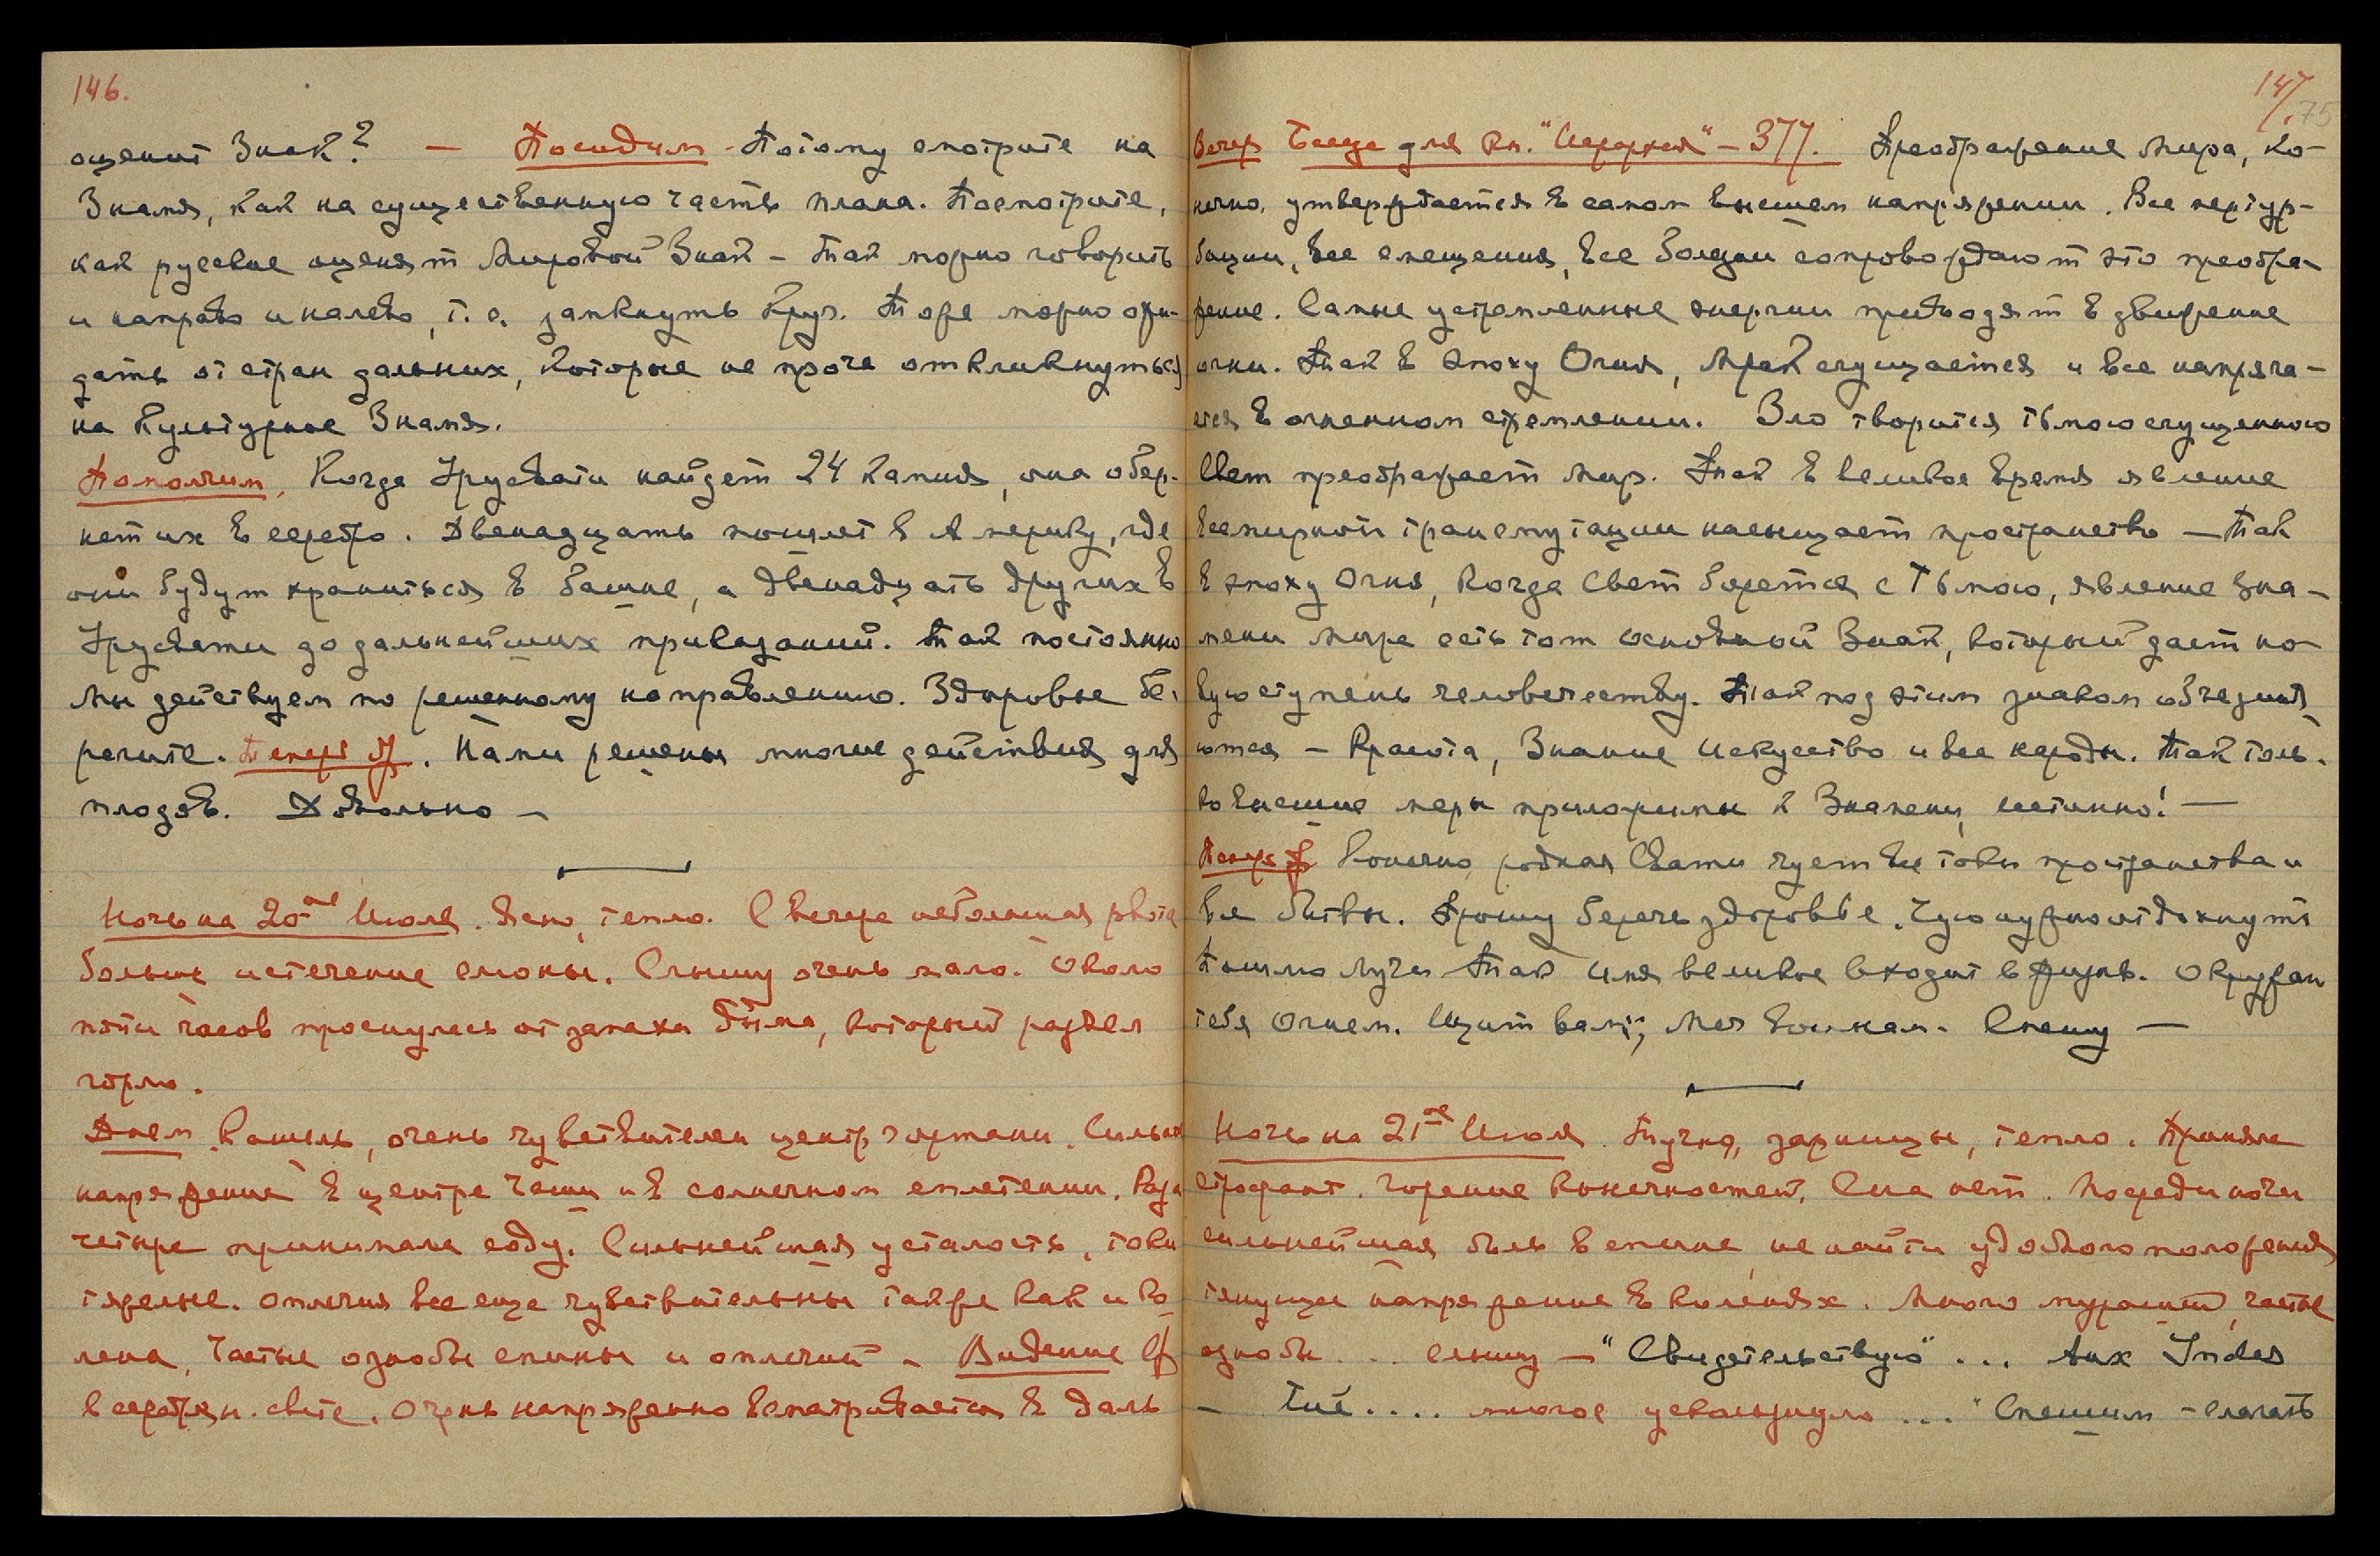 146.
оценит Знак? — Посидим - Потому смотрите на
Знамя, как на существенную часть плана. Посмотрите,
как русские оценят Мировой Знак - так можно говорить
и направо и налево, т.е. замкнуть Круг. Тоже можно ожи-
дать от стран дальних, которые не прочь откликнуться
на Культурное Знамя.
Помолчим, Когда Урусвати найдет 24 камня, она обер-
нет их в серебро. Двенадцать пошлет в Америку, где
они будут храниться в башне, а двенадцать других в
Урусвати до дальнейших приказаний. Так постоянно
мы действуем по решенному направлению. Здоровье бе-
регите. Теперь Я. Нами решены многие действия для
плодов. Довольно —
Ночь на 20-ое Июля. Ясно, тепло. С вечера небольшая рвота
больше истечение слюны. Слышу очень мало. Около
пяти часов проснулась от запаха дыма, который разъел
горло.
Днем Кашель, очень чувствителен центр гортани. Сильное
напряжение в центре Чаши и в солнечном сплетении. Раза
четыре принимала соду. Сильнейшая усталость, токи
тяжелые. Оплечия все еще чувствительны также как и ко-
лена, Частые ознобы спины и оплечий - Видение
в серебрян. свете. Очень напряженно всматривается в даль
147
75
Вечер Беседа для кн. "Иерархия" - 377. Преображение Мира, ко-
нечно, утверждается в самом высшем напряжении. Все пертур-
бации, все смещения, все болезни сопровождают это преобра-
жение. Самые устремленные энергии приводят в движение
огни. Так в эпоху Огня, Мрак сгущается и все напряга-
ется в огненном стремлении. Зло творится тьмою сгущенною
Свет преображает Мир. Так в великое время явление
всемирной трансмутации насыщает пространство — Так
в эпоху Огня, когда Свет борется с Тьмою, явление Зна-
мени Мира есть тот основной Знак, который даст но-
вую ступень человечеству. Так под этим знаком объединя-
ются - Красота, Знание Искусство и все народы. Так толь-
ко высшие меры приложимы к Знамени, истинно! —
Теперь Я Конечно, родная Свати чует все токи пространства и
все битвы. Прошу беречь здоровье. Чую нужно отдохнуть
Пошлю Лучи Так Имя великое входит в жизнь. Окружаю
тебя Огнем. Щит вам; Меч воинам. Спешу —
Ночь на 21-ое Июля Тучно, зарницы, тепло. Приняла
строфант. Горение конечностей, Сна нет. Посреди ночи
сильнейшая боль в спине, не найти удобного положения
тянущее напряжение в коленях. Много мурашей, частые
ознобы... слышу — "Свидетельствую"...
— .... многое ускользнуло... "Спешим - слагать